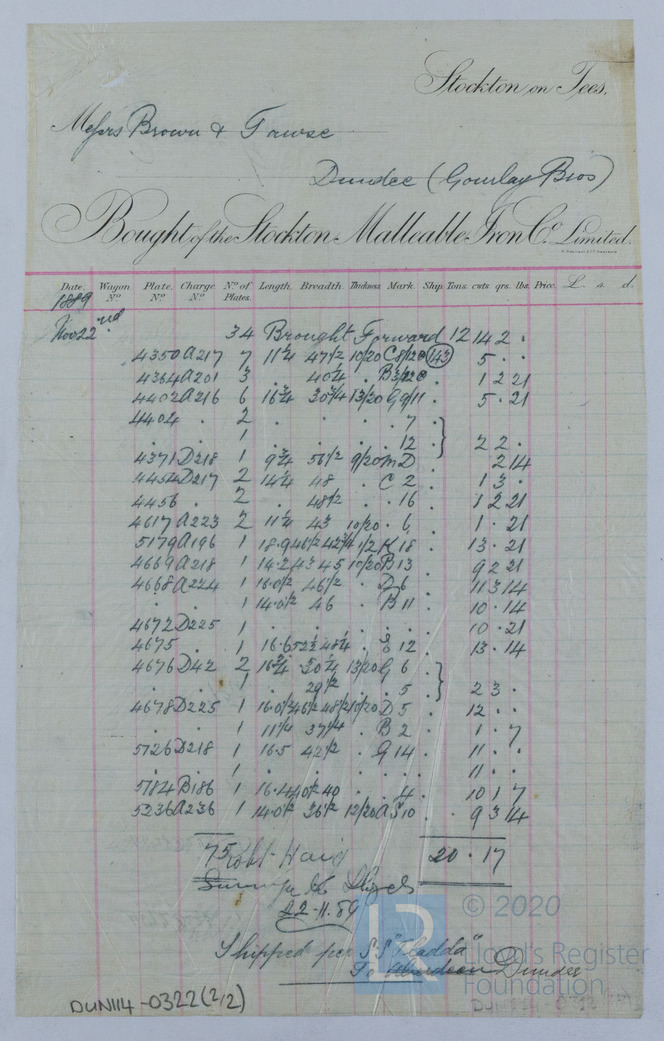 Stockton on Tees.
Messrs Brown & Tawse
Dundee (Gourlay Bros)
Bought of the Stockton Malleable Iron Co. Limited.
Date. Wagon No. Plate. No. Charge No. No. of Plates. Length. Breadth. Thickness. Mark. Ship. Tons. cwts. qrs. lbs. Price. £. s. d.
1889
Nov 22nd 34 Brought Forward 12 14 2 .
4350 A217 7 11¼ 47½ 10/20 C 8/12 (143) 5 .
4364 A201 3 . 40¼ . B 1 2 21
4402 A216 6 16¾ 30¾ 13/20 G 9/11 . 5 . 21
4404 . 2 . . . . 7 .
. 1 . . . . 12 . } 2 2 .
4371 D218 1 9¾ 56½ 9/20 M D 2 14
4454 D217 2 14¼ 48 . C 2 . 1 3 .
4456 . 2 . 48½ . . 16 . 1 2 21
4617 A223 2 11¼ 43 10/20 . 6 . 1 . 21
5179 A196 1 18.9 46½ 42¾ 1/2 K 18 . 13 . 21
4669 A218 1 14.2 43 45 10/20 B 13 . 9 2 21
4668 A224 1 16.0½ 46½ . D 6 . 11 3 14
. . 1 14.0½ 46 . B 11 . 10 . 14
4672 D225 1 . . . . . . 10 . 21
4675 . 1 16.6 52½ 48¼ . 12 . 13 . 14
4676 D42 2 16¾ 30¼ 13/20 G 6 .
. . 1 . 29½ . . 5 . } 2 3 .
4678 D225 1 16.0½ 46½ 48½ 10/20 D 5 . 12 . .
. . 1 11¼ 37¼ . B 2 . 1 . 7
5726 D218 1 16.5 42½ . G 14 . 11 . .
. . 1 . . . . . . 11 . .
5784 B186 1 16.4 40½ 40 . . 4 . 10 1 7
5236 A236 1 14.0½ 36½ 12/20 A S 10 . . 9 3 14
75 20 . 17
Robt Haig
Surveyor to Lloyds
22-11.89
Shipped per S.S "Pladda"
To Aberdeen Dundee
DUN114-0322(2/2)
LR
© 2020
Lloyd's Register
Foundation